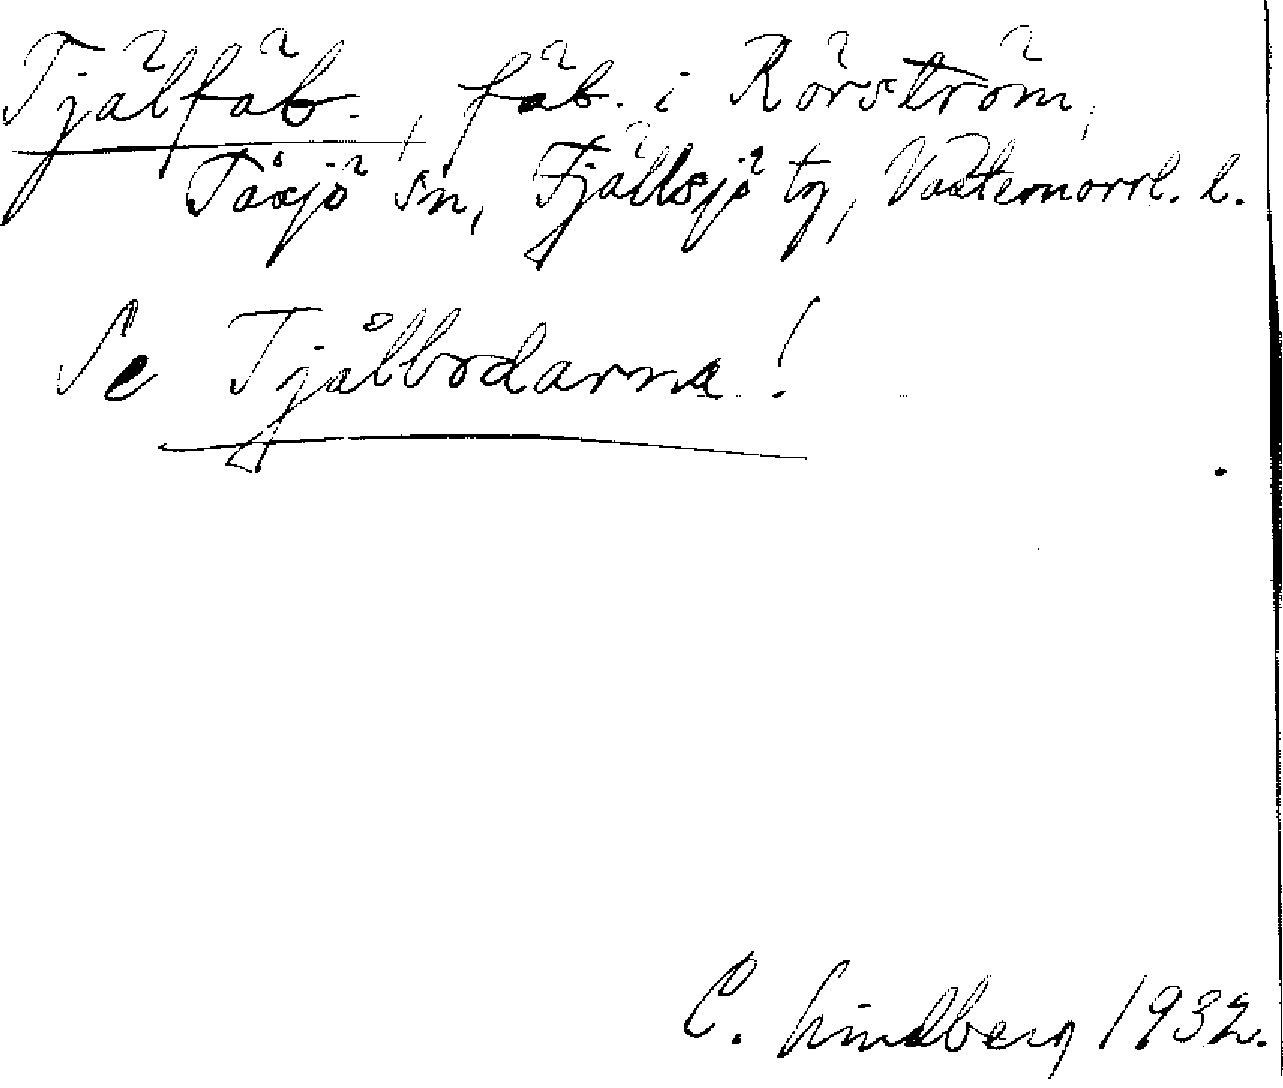 Tjälfäb., fäb. i Rörström,
Tåsjö sn, Fjällsjö tg, Västernorrl. l.
Se Tjålbodarna!
C. Lindberg 1932.